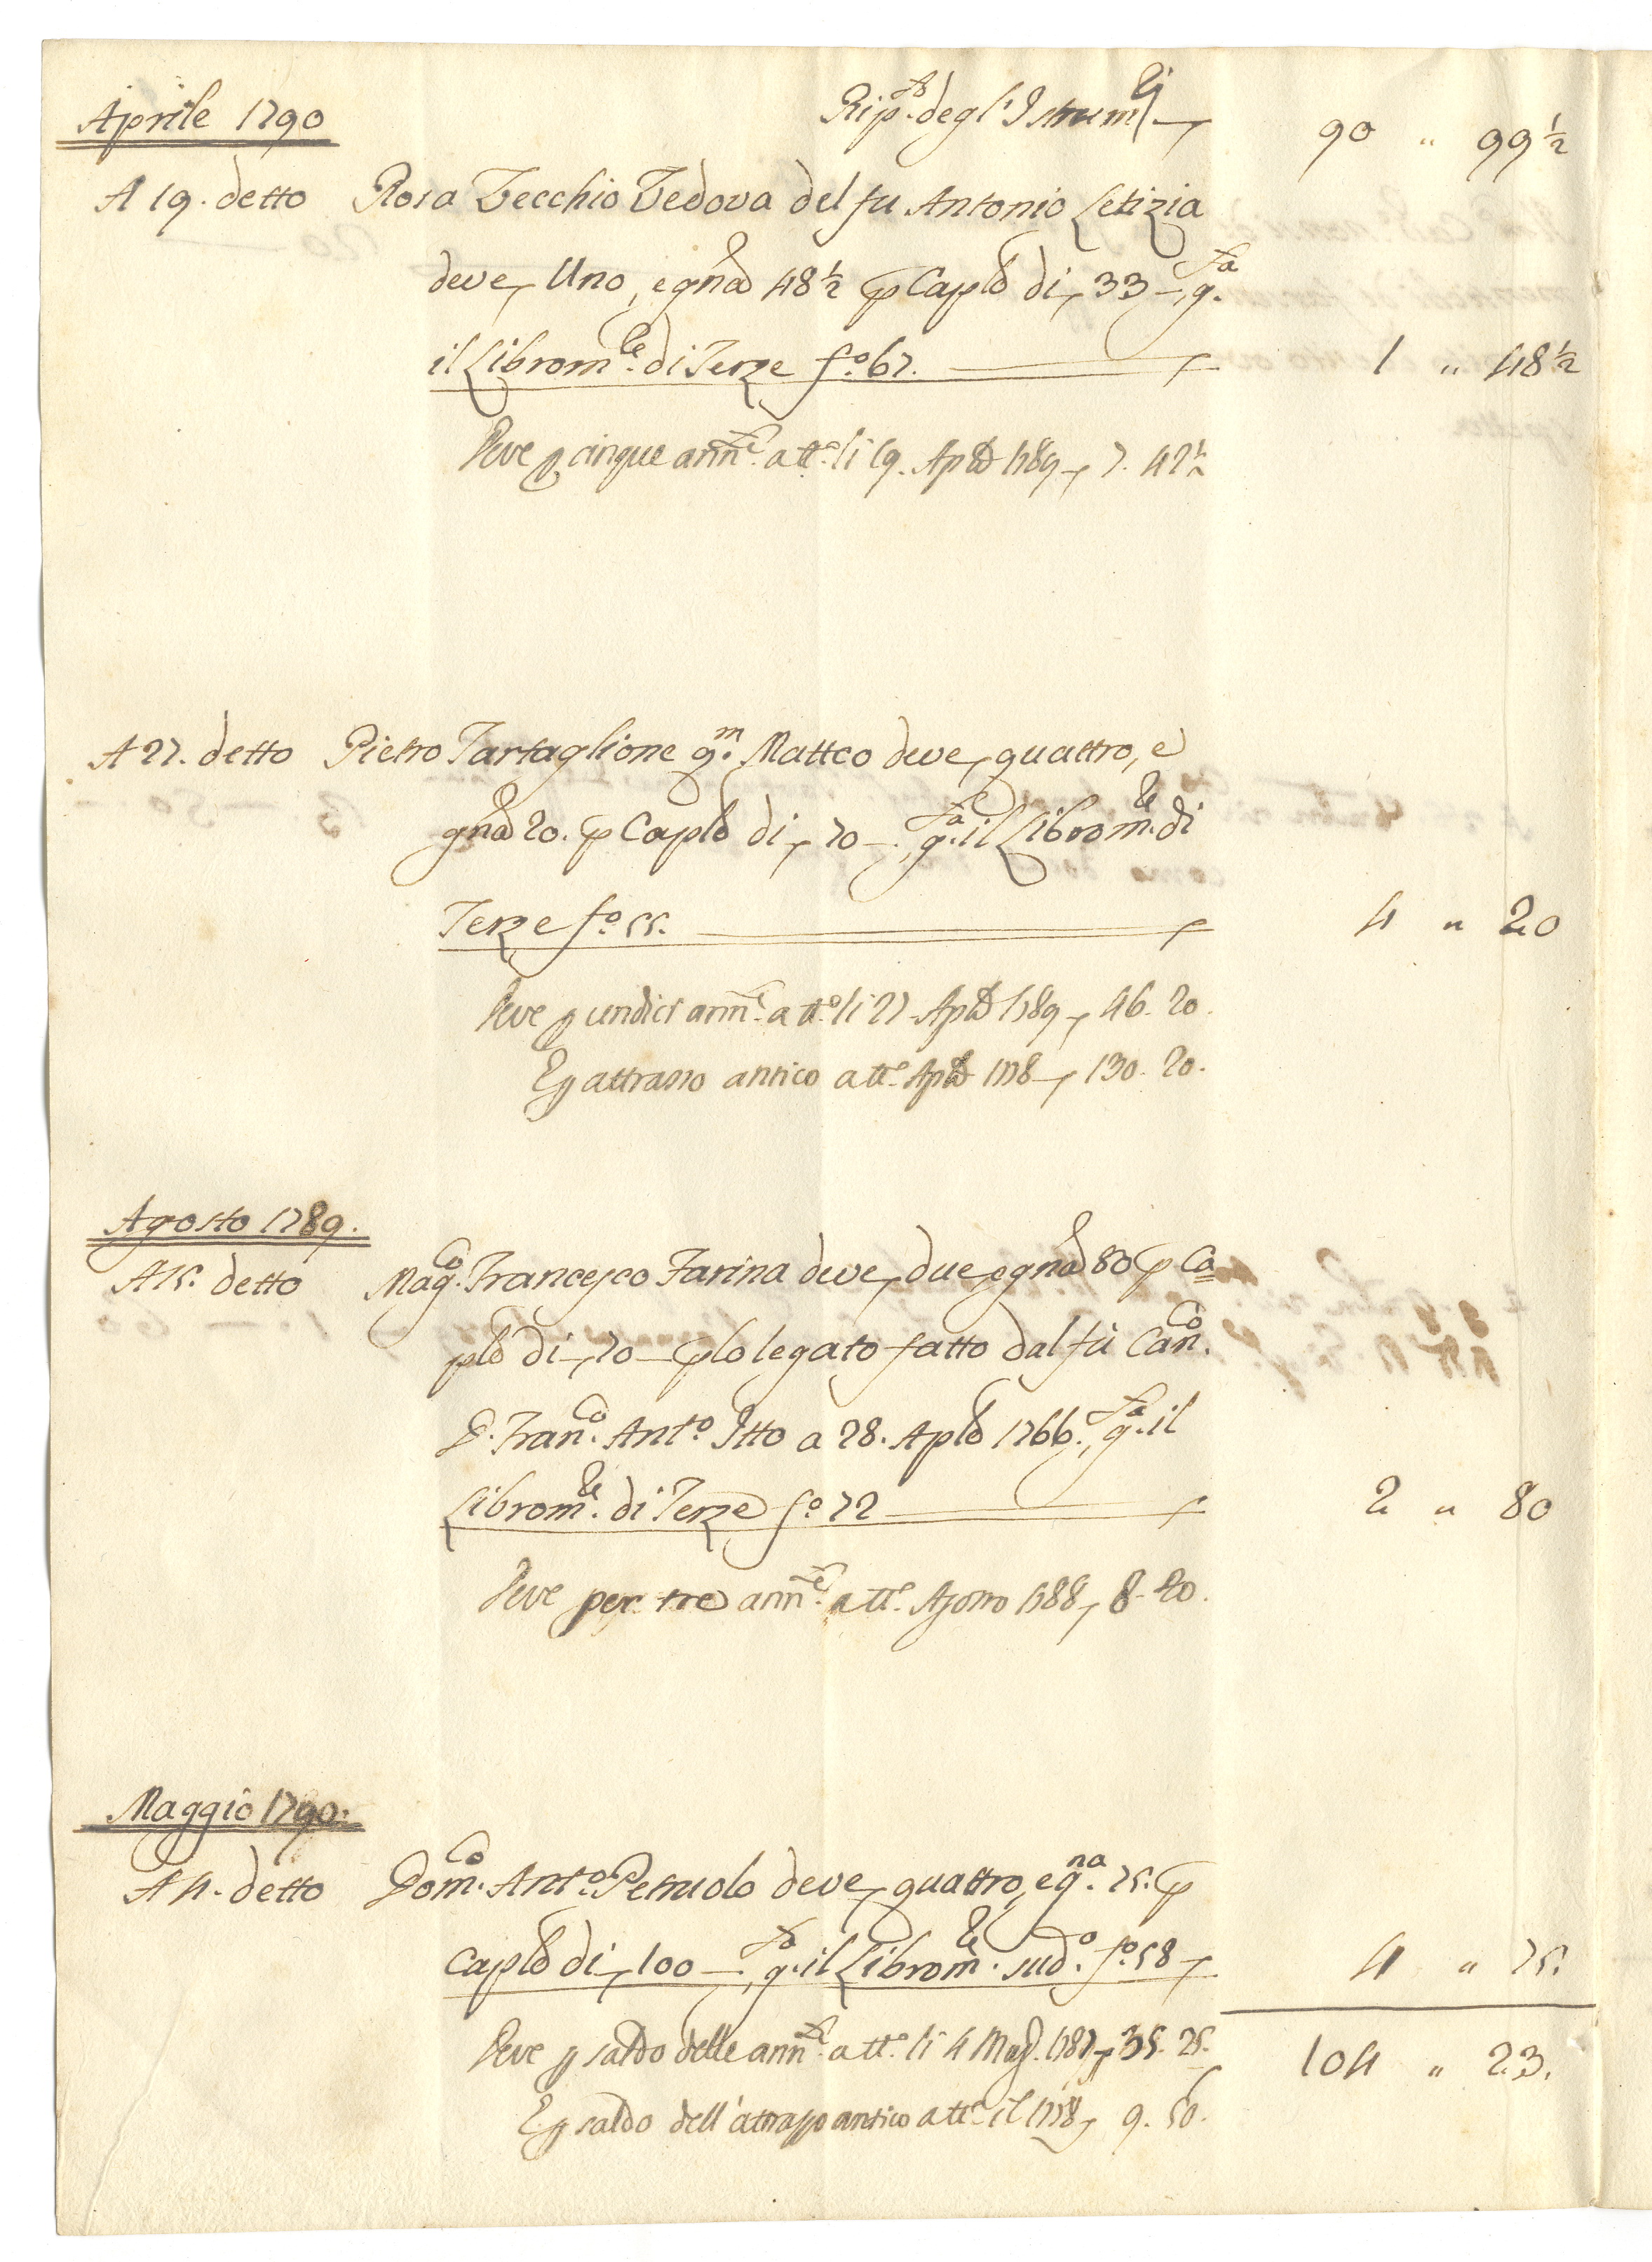 Aprile 1790
Rip.to degl'Istrum.ti 90 " 99½
A 19. detto Rosa Vecchio Vedova del fu Antonio Letizia
deve Uno, e gña 48½ p Caplẽ di 33-, g.ta
il Librom.le di Terze f.o 67. 1 " 48½
Deve p cinque ann.te att.o li 19. Aplẽ 1789 7. 42½
A 27. detto Pietro Tartaglione q.m Matteo deve quattro, e
gña 20. p Caplẽ di 70-, g.ta il Librom.le di
Terze f.o 55. 4 " 20
Deve p undici ann.te att.o li 27 Aplẽ 1789 46. 20.
E p attrasso antico att.o Aplẽ 1778 130. 20.
Agosto 1789.
A 15. detto Mag.co Francesco Farina deve due, e gña 80 p Ca=
plẽ di 70- p lo legato fatto dal fù Can.co
D. Fran.co Ant.o Itto a 28. Aplẽ 1766., g.ta il
Librom.le di Terze f.o 72 2 " 80
Deve per tre ann.te att.o Agosto 1788 8. 40.
Maggio 1790.
A 4. detto Dom.co Ant.o Petruolo deve quattro, e g.na 75. p
Caplẽ di 100-., g.ta il Librom.le sud.o f.o 58 4 " 75.
Deve p saldo delle ann.te att.o li 4 Mag. 1787 35. 25.
104 " 23.
E p saldo dell'attrasso antico att.o il 1778 9. 50.